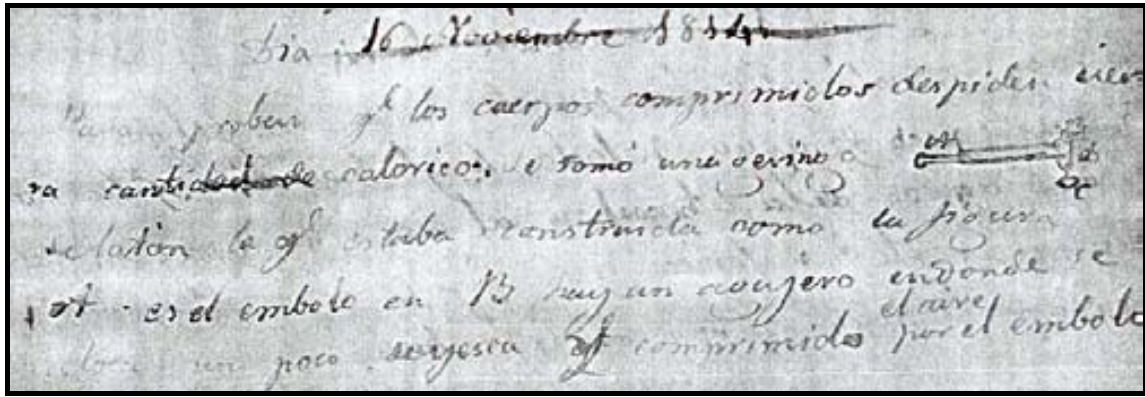 Dia 16 Noviembre 1814
Para probar q.e los cuerpos comprimidos despiden cier
ta cantidad de calorico, se tomó una geringa
de laton la q.e estaba construida como la figura
A es el embolo en B hay un agujero endonde se
un poco de yesca q.e comprimido el aire por el embolo